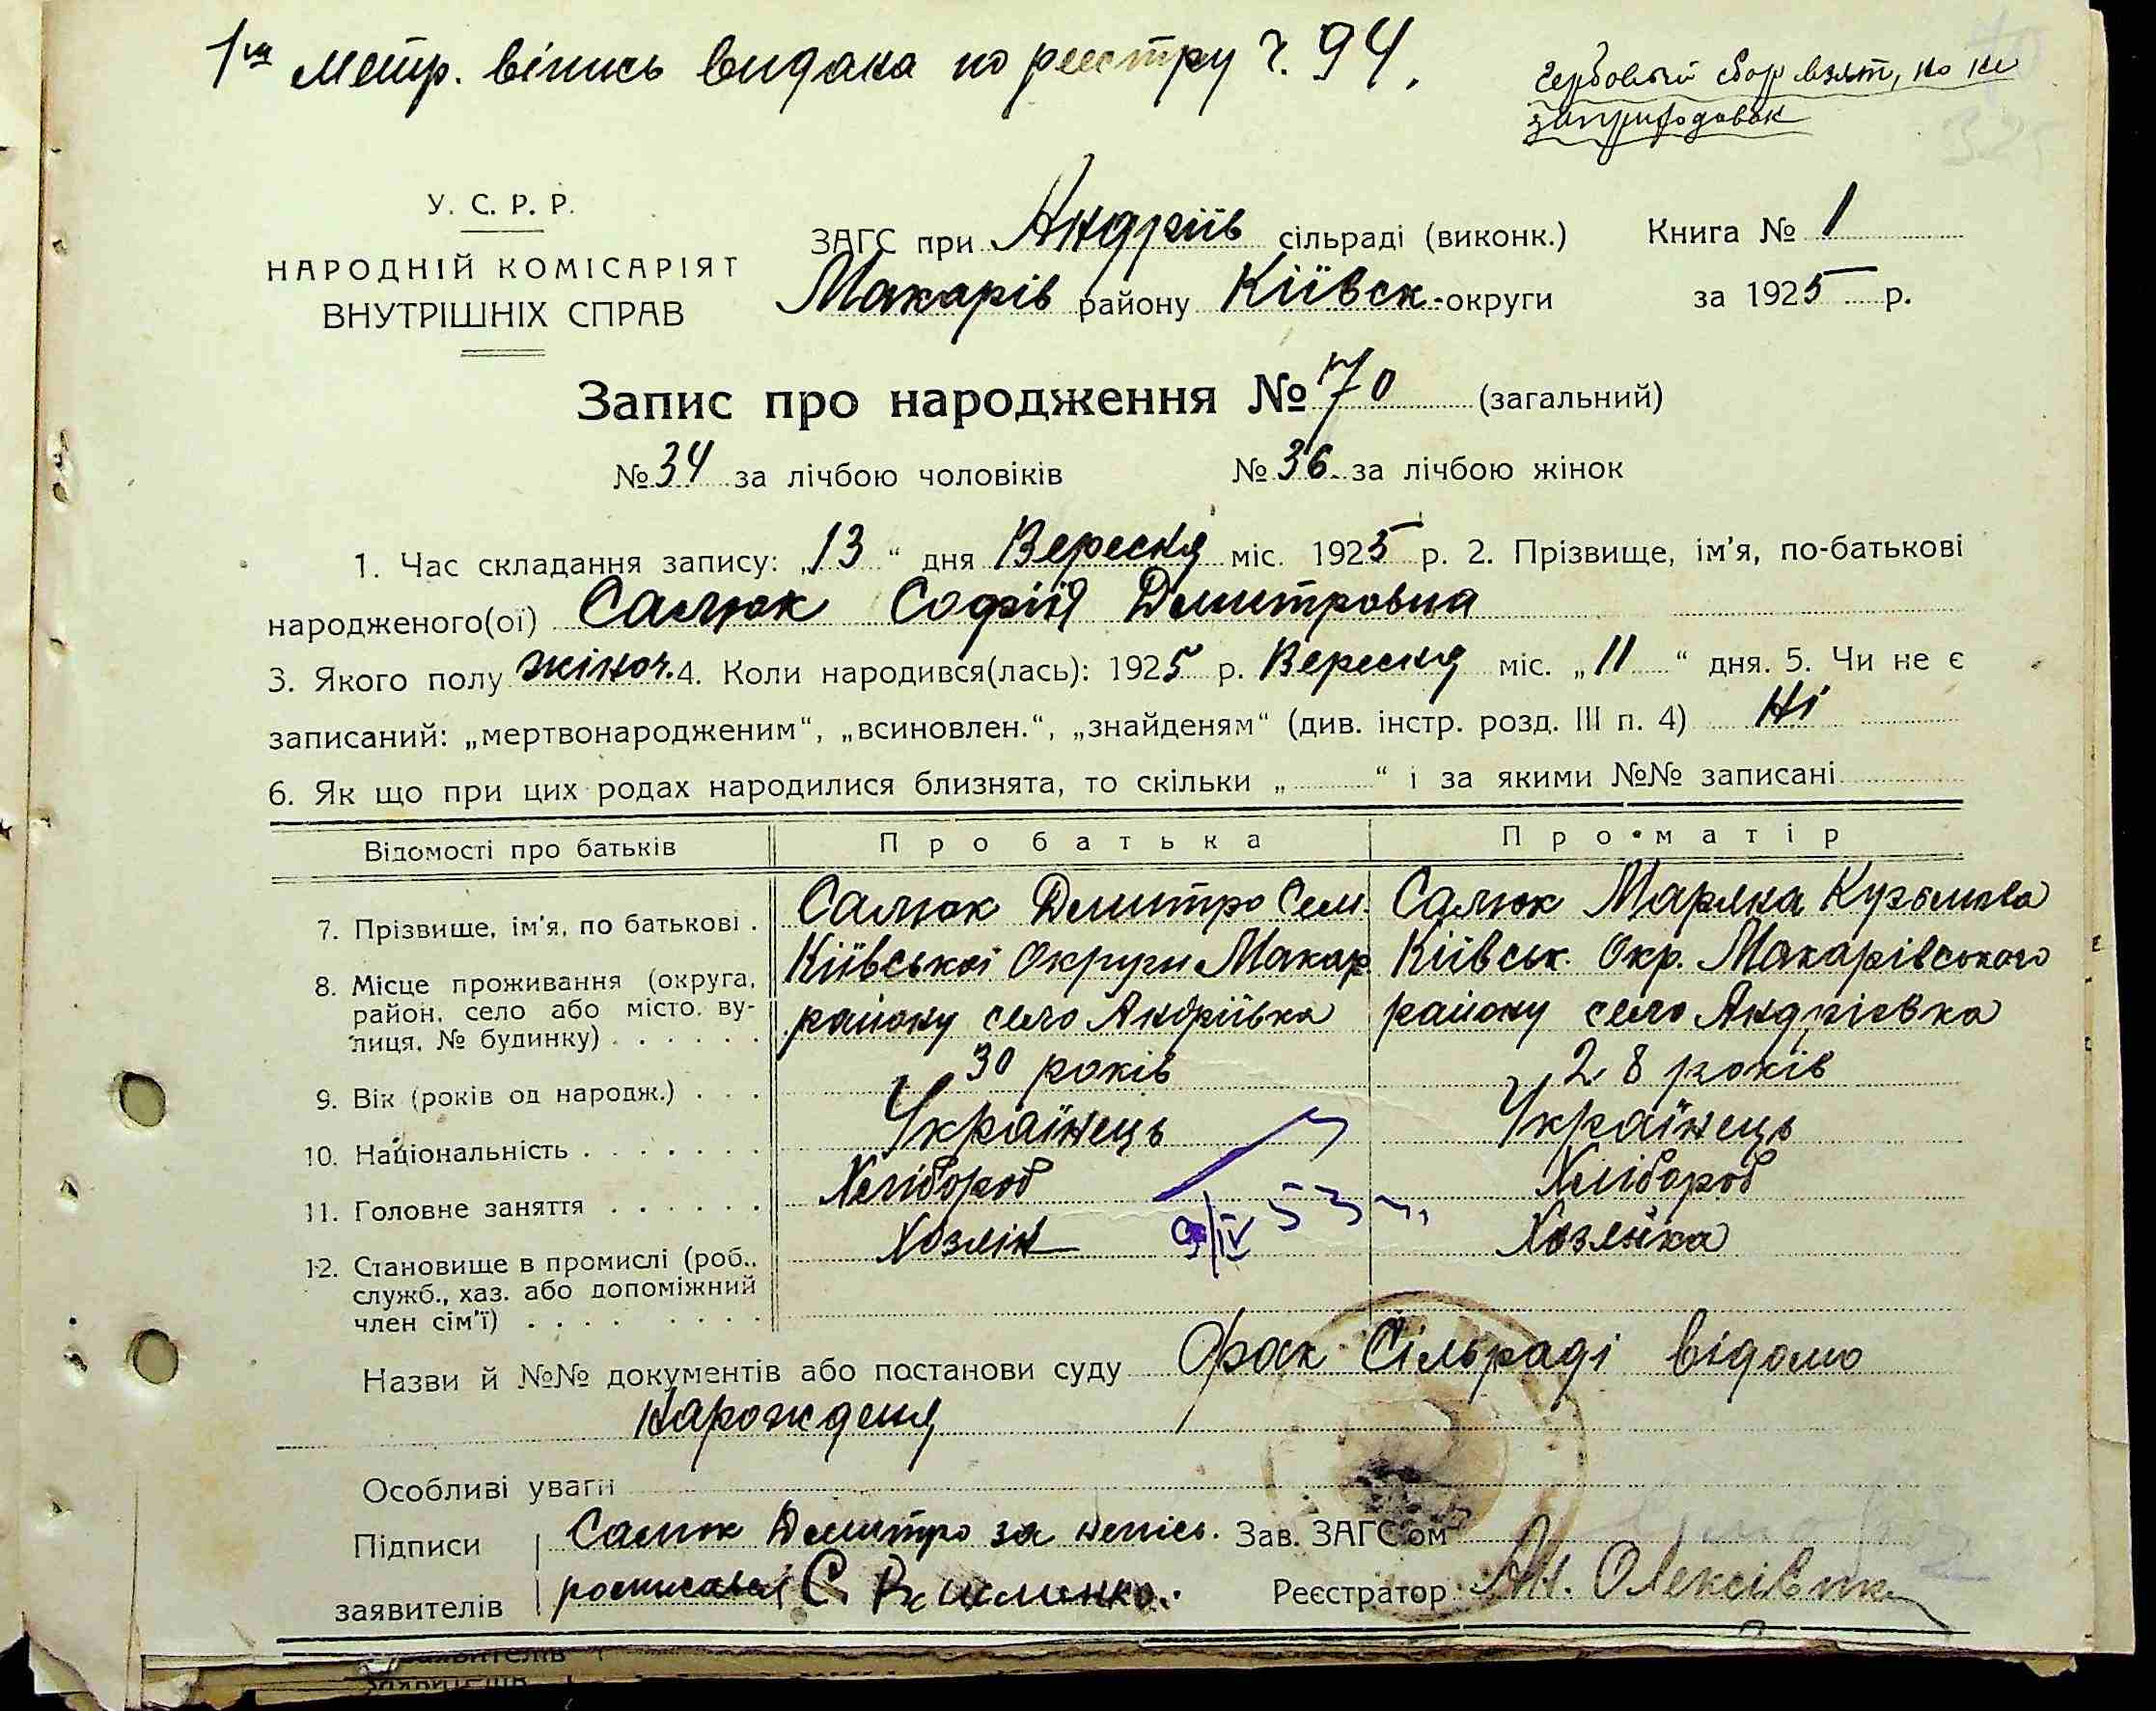 1ша метр. вінись видана по реєстру ч. 94.
Гербовый сбор взят, но не
У. С. Р. Р.
НАРОДНІЙ КОМІСАРІЯТ
ВНУТРІШНІХ СПРАВ
ЗАГС при Андріїв сільраді (виконк.) Книга № 1
Макарів району Кіївск. округи за 1925 р.
Запис про народження № 70 (загальний)
№ 34 за лічбою чоловіків № 36. за лічбою жінок
1. Час складання запису: „13“ дня Вересня міс. 1925 р. 2. Прізвище, ім'я, по-батькові
народженого(ої) Салюк Софія Дмитровна
3. Якого полу жіноч. 4. Коли народився(лась): 1925 р. Вересня міс. „11“ дня. 5. Чи не є
записаний: „мертвонародженим“, „всиновлен.“, „знайденям“ (див. інстр. розд. III п. 4) Ні
6. Як що при цих родах народилися близнята, то скільки „ “ і за якими №№ записані
Відомості про батьків Про батька Про матір
7. Прізвище, ім'я, по батькові . Салюк Дмитро Сем. Салюк Маряна Кузьмова
8. Місце проживання (округа, Кіївської Округи Макар Кіївськ. Окр. Макарівського
район, село або місто, ву- району село Андріївка району село Андрієвка
лиця, № будинку) . . . . . .
9. Вік (років од народж.) . . . 30 років 28 років
10. Національність . . . . . . . Українець Українець
11. Головне заняття . . . . . . Хлібороб Хлібороб
12. Становище в промислі (роб., Хозяін 9/IV 53 г. Хозяйка
служб., хаз. або допоміжний
член сім'ї) . . . . . . . .
Назви й №№ документів або постанови суду Фак Сільраді відомо
нарожденя
Особливі уваги
Підписи Салюк Дмитро за непісь. Зав. ЗАГС'ом
заявителів росписався С. Реєстратор Ал. Олексієнко